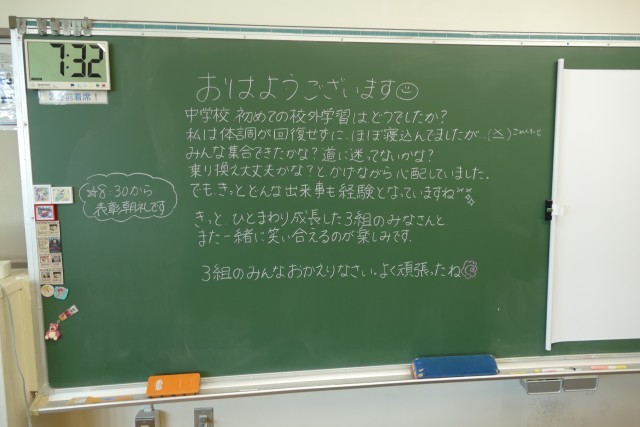 7:32
おはようございます
中学校 初めての校外学習はどうでしたか?
私は体調が回復せずに、ほぼ寝込んでましたが
みんな集合できたかな? 道に迷ってないかな?
乗り換え大丈夫かな? とかげながら心配していました。
でも、きっとどんな出来事も経験となっていますね
きっと ひとまわり成長した3組のみなさんと
また一緒に笑い合えるのが楽しみです。
3組のみんなおかえりなさい。よく頑張ったね
☆8:30から
表彰朝礼です